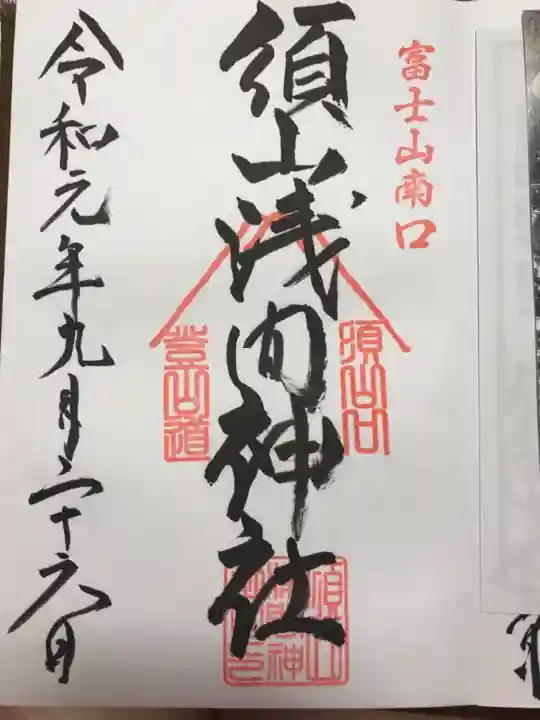 富士山南口
須山口
須山浅间神社
登山道
令和元年九月二十六日